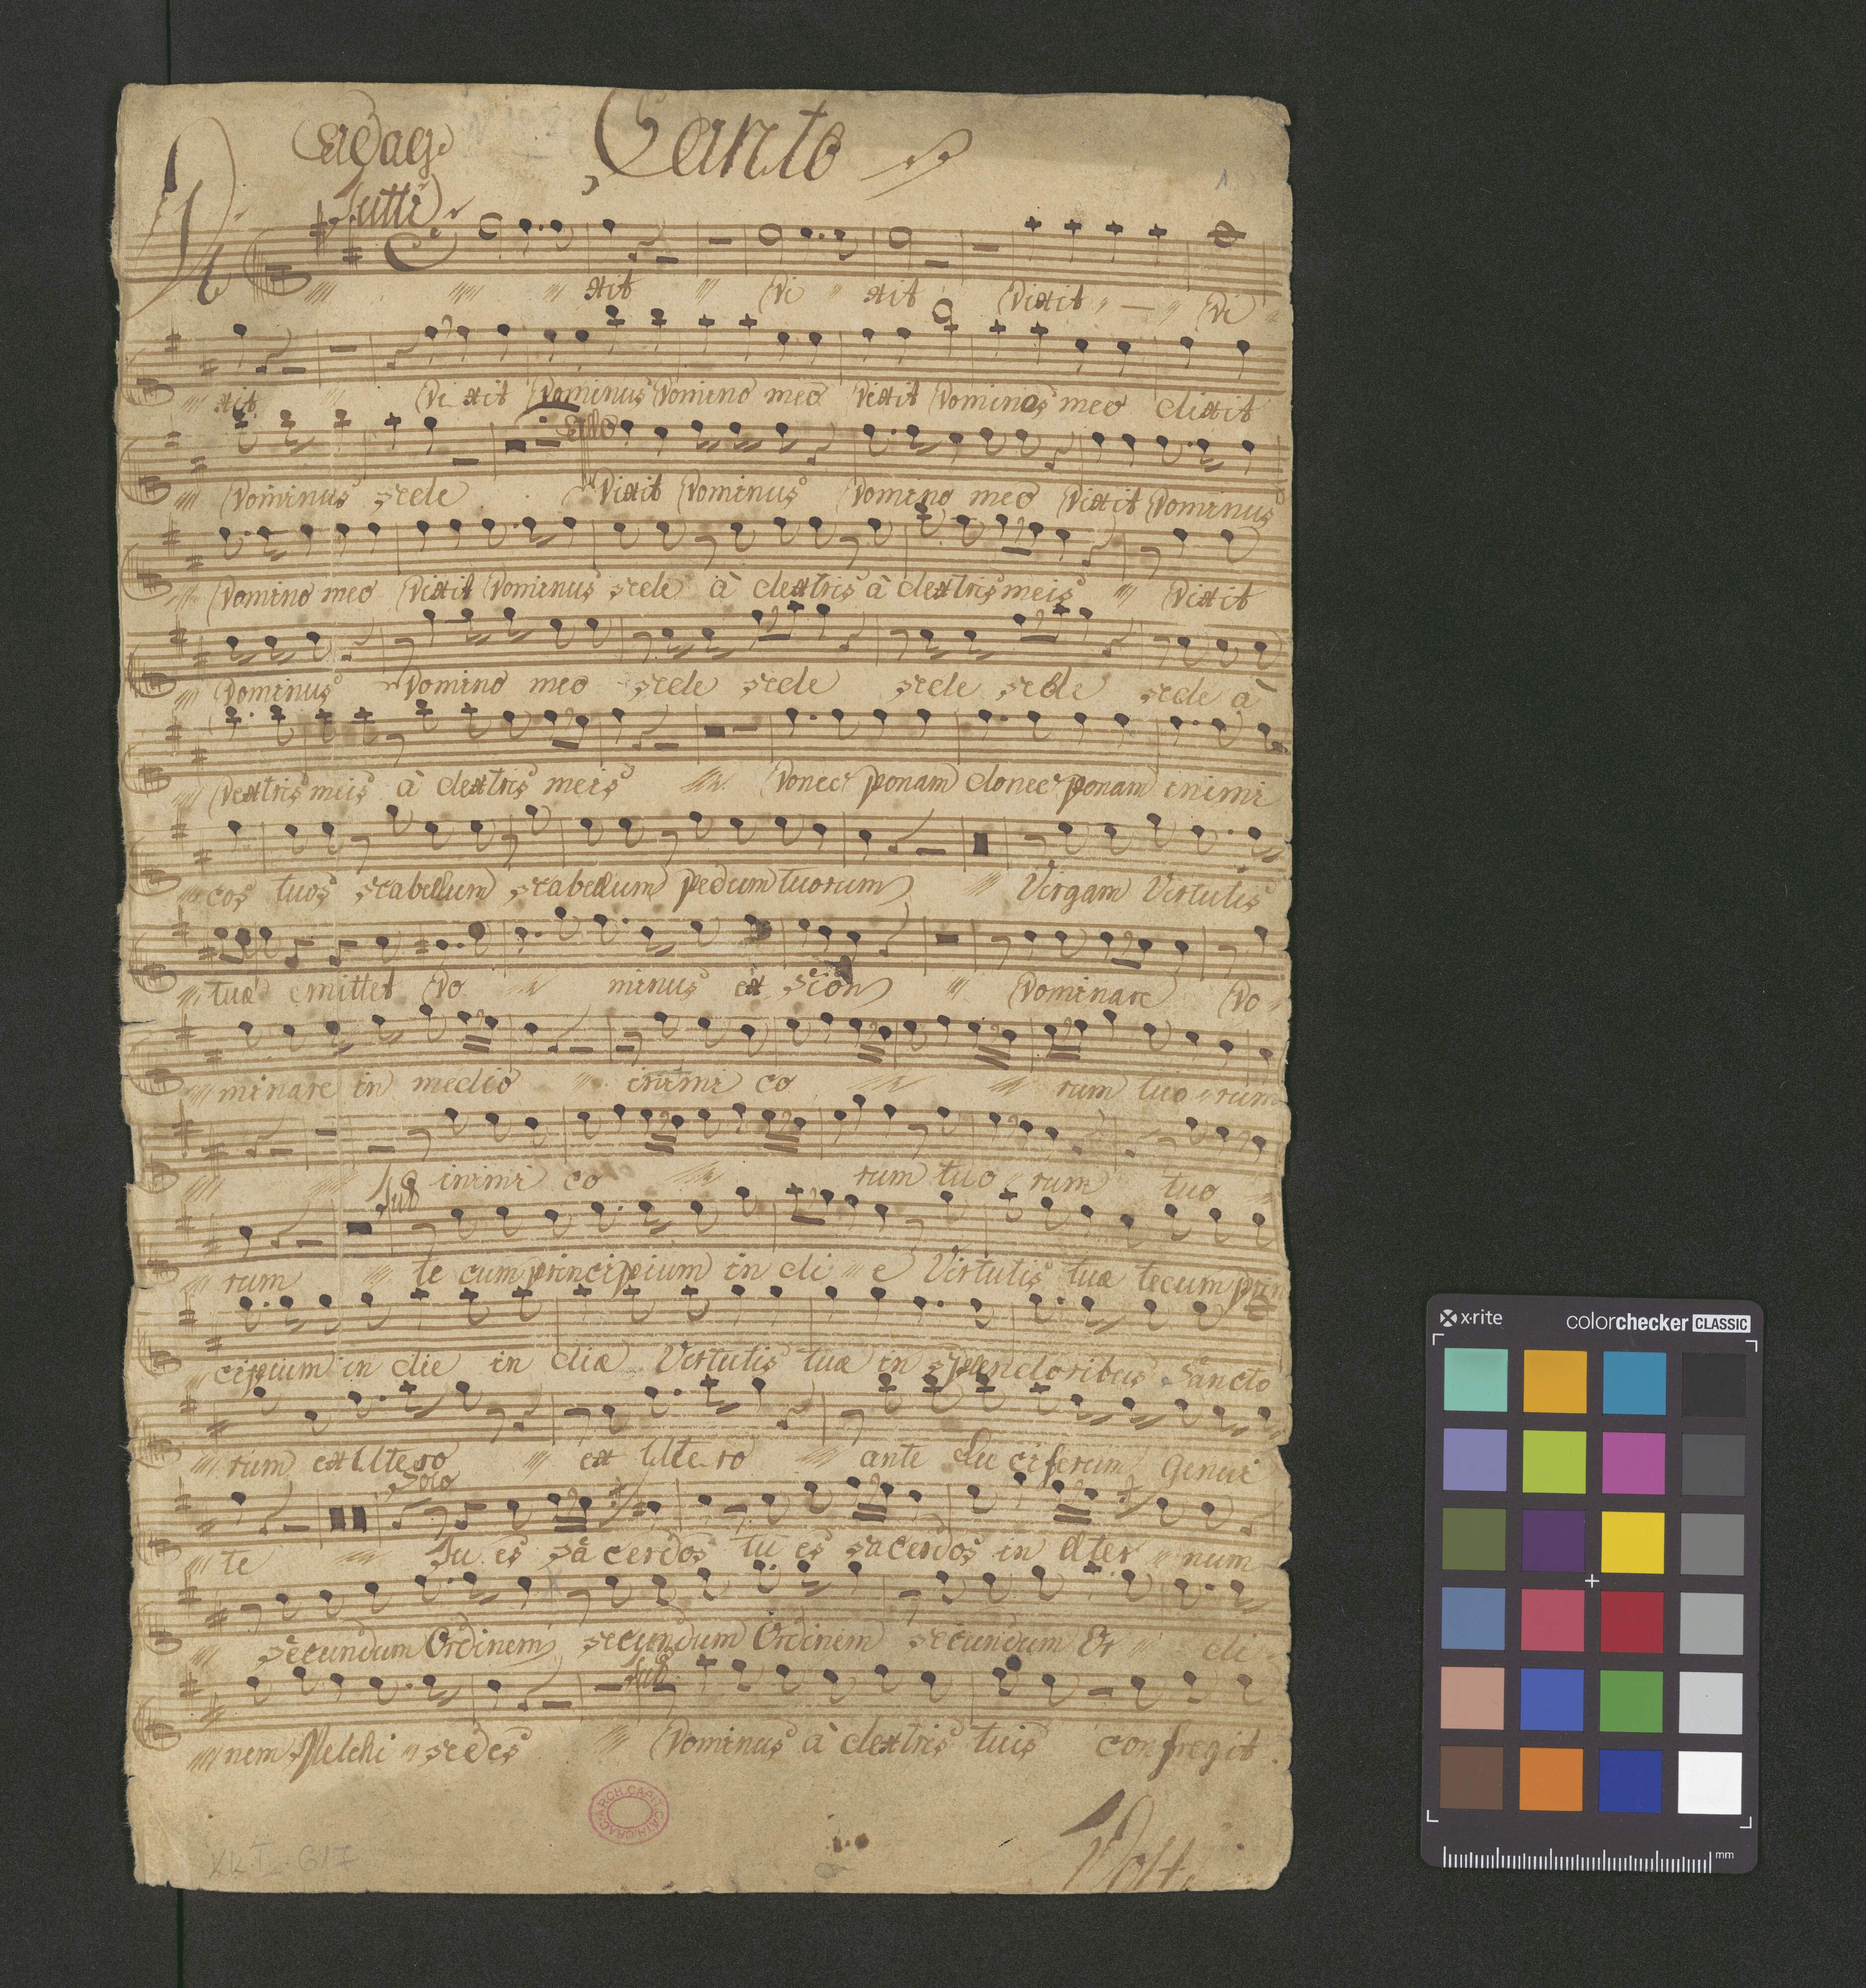 Canto
Adag.
Tutti
Di xit Di xit Dixit Di
xit Di xit Dominus Domino meo Dixit Dominos meo dixit
Solo
Dominus sede Dixit Dominus Domino meo Dixit Dominus
Domino meo Dixit Dominus sede à dextris à dextris meis Dixit
Dominus Domino meo sede sede sede sede sede à
Dextris meis à dextris meis Donec ponam donec ponam inimi
cos tuos scabellum scabellum pedum tuorum Virgam Virtutis
tuæ emittet Do minus ex Sion Dominare Do
minare in medio inimi co rum tuo rum
inimi co rum tuo rum tuo
Tutt
rum te cum principium in di e Virtutis tuæ tecum prin
cipium in die in diæ Virtutis tuæ in splendoribus Sancto
rum ex Utero ex Utero ante luciferum Genui
Solo
te Tu es sacerdos tu es sacerdos in æter num
secundum Ordinem secundum Ordinem secundum Or di
Tutt
nem Melchi sedes Dominus à dextris tuis confregit
ARCH. CAPIT. CATH. CRAC.
KK I. 617
Volti
x·rite colorchecker CLASSIC
mm